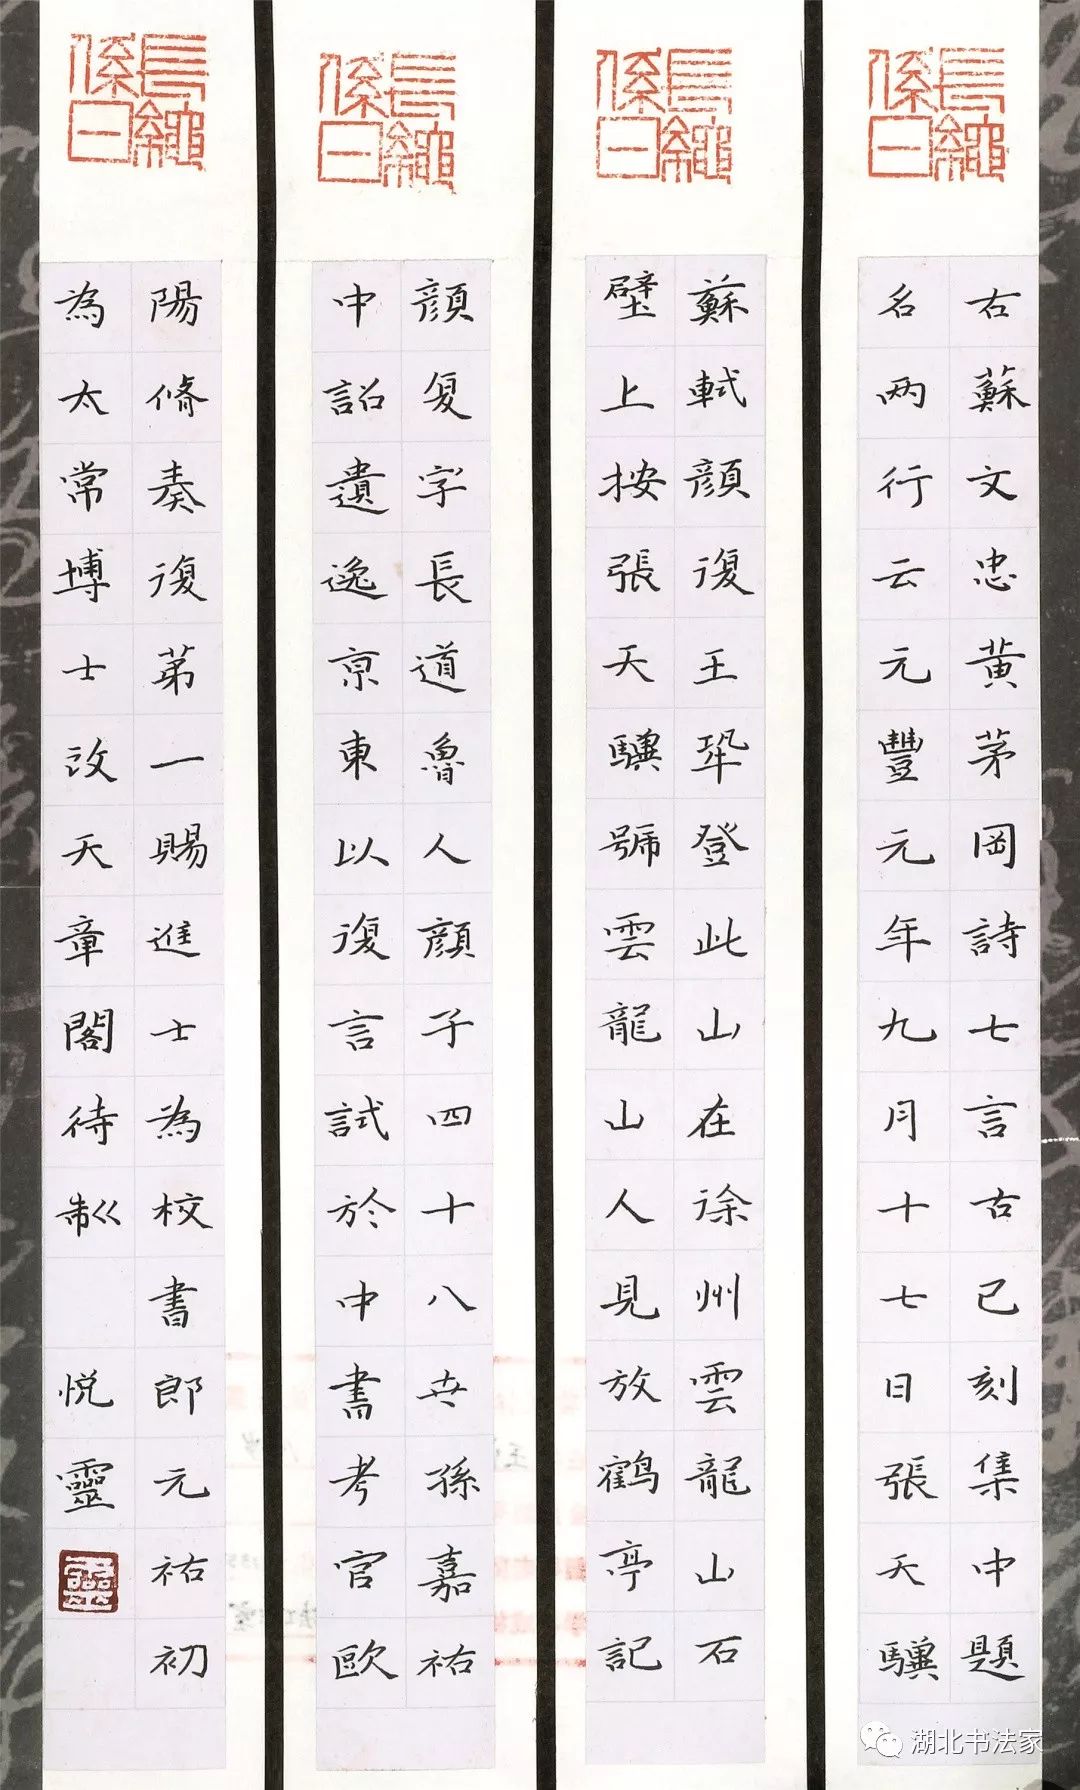 長繩係日
右蘇文忠黄茅岡詩七言古已刻集中題
名两行云元豐元年九月十七日張天驥
長繩係日
蘇軾顔復王鞏登此山在徐州雲龍山石
壁上按張天驥號雲龍山人見放鶴亭記
長繩係日
顔复字長道魯人顔子四十八世孫嘉祐
中詔遺逸京東以復言試於中書考官歐
長繩係日
陽脩奏復第一賜進士為校書郎元祐初
為太常博士改天章閣待制 悦靈
靈
湖北书法家